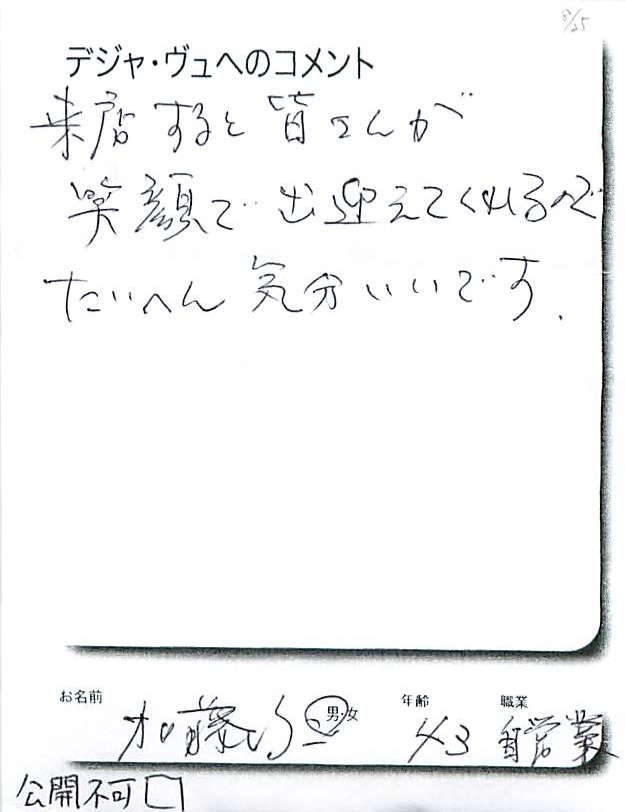 8/25
デジャ・ヴュへのコメント
来店すると皆さんが
笑顔で出迎えてくれるので
たいへん気分いいです.
お名前 加藤 男・女 年齢 43 職業 自営業
公開不可